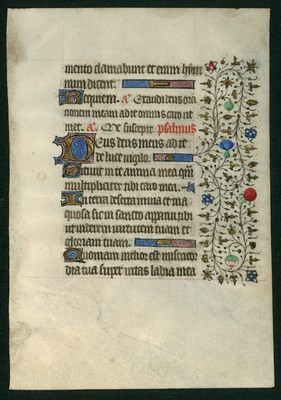 mento clamabunt et enim hym
num dicent.
Requiem. A. Exaudi deus ora
cionem meam ad te omnis caro ve
niet. A. Me suscepit. psalmus
Deus deus meus ad te
de luce vigilo.
Sitivit in te anima mea qm
multipliciter tibi caro mea.
In terra deserta invia et ina
quosa sic in sancto apparui tibi
ut viderem virtutem tuam et
gloriam tuam.
Quoniam melior est misericor
dia tua super vitas labia mea